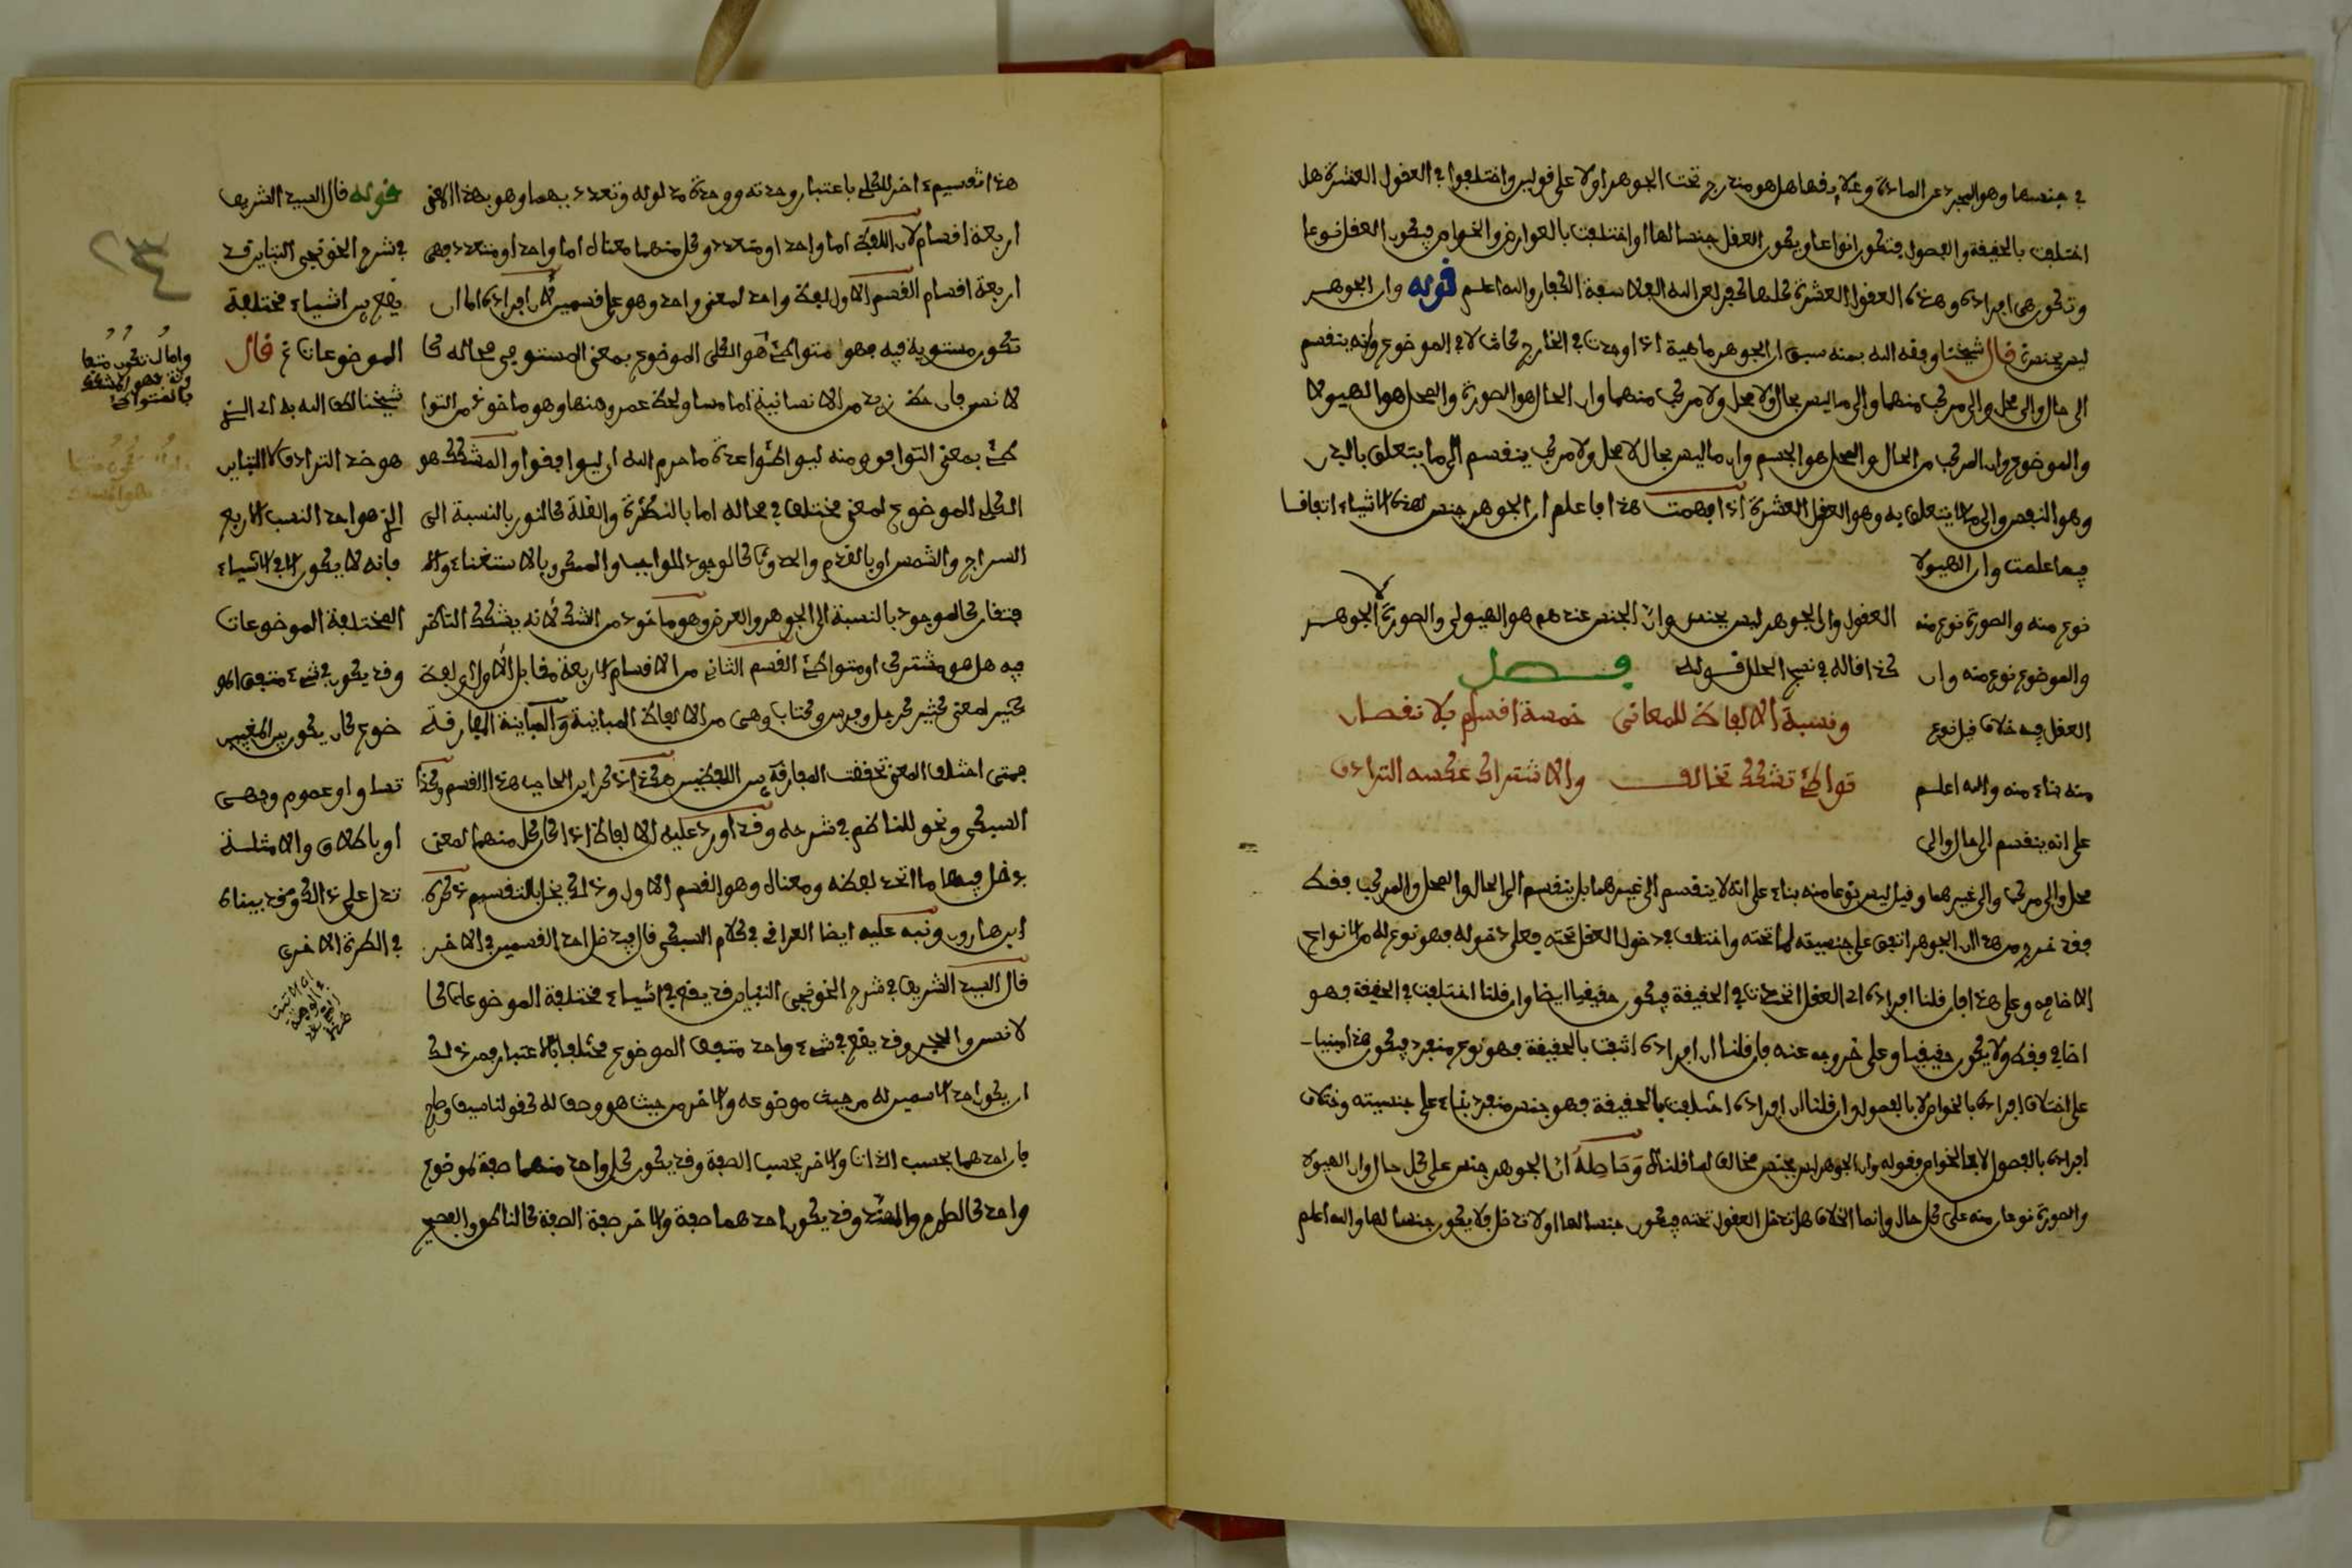 في جنسها وهو المجرد عن المادة وعلايقها هل هو مندرج تحت الجوهر اولا على قولين واختلفوا في العقول العشرة هل
اختلفت بالحقيقة والفصول فتكون انواعا ويكون العقل جنسا لها او اختلفت بالعوارض والخواص فيكون العقل نوعا
وتكون هي افراده وهذه العقول العشرة كلها كفر لعن الله الفلاسفة الكفار والله اعلم قوله وان الجوهر
ليس بجنس قال شيخنا وفقه الله بمنه سبق ان الجوهر ماهية اذا وجدت في الخارج كانت لا في الموضوع وانه ينقسم
الى حال والى محل والى مركب منهما والى ما ليس بحال ولا محل ولا مركب منهما وان الحال هو الصورة والمحل هو الهيولا
والموضوع وان المركب من الحال والمحل هو الجسم وان ما ليس بحال لا محل ولا مركب ينقسم الى ما يتعلق بالبدن
وهو النفس والى ما لا يتعلق به وهو العقل العشرة اذا فهمت هذا فاعلم ان الجوهر جنس لهذه الاشياء اتفاقا
فيما علمت وان الهيولا
نوع منه والصورة نوع منه
والموضوع نوع منه وان
العقل فيه خلاف قيل نوع
منه بناء منه والله اعلم
على انه ينقسم الى حال والى
العقول وان الجوهر ليس بجنس وان الجنس عندهم هو الهيولى والصورة الجوهر
كذا قاله في نصح الحلل قوله فصل
ونسبة الالفاظ للمعانى خمسة اقسام بلا نقصان
تواطئ تشكك تخالف والاشتراك عكسه الترادف
محل والى مركب والى غيرهما وقيل ليس نوعا منه بناء على انه لا ينقسم الى غيرهما بل ينقسم الى الحال والمحل والمركب فقط
فقد خرج من هذا ان الجوهر اتفق على جنسيته لما تحته واختلف في دخول العقل تحته فعلى دخوله فهو نوع له من الانواع
الاضافية وعلى هذا فان قلنا افراده اي العقل اتحدت في الحقيقة فيكون حقيقيا ايضا وان قلنا اختلفت في الحقيقة فهو
اضافي فقط ولا يكون حقيقيا وعلى خروجه عنه فان قلنا ان افراده اتفقت بالحقيقة فهو نوع منفرد فيكون هذا مبنيا
على اختلاف افراده بالخواص لا بالفصول وان قلنا ان افراده اختلفت بالحقيقة فهو جنس منفرد بناء على جنسيته وخلاف
افراده بالفصول لا بالخواص فقوله وان الجوهر ليس بجنس مخالف لما قلناه وحاصله ان الجوهر جنس على كل حال وان الهيولا
والصورة نوعان منه على كل حال وانما الخلاف هل تدخل العقول تحته فيكون جنسا لها اولا تدخل فلا يكون جنسا لها والله اعلم
هذا تقسيم اخر للكلي باعتبار وحدته ووحدة مدلوله وتعدد بهما وهو بهذا المعنى
اربعة اقسام لان اللفظ اما واحد او متعدد وكل منهما معناه اما واحد او متعدد فهي
اربعة اقسام القسم الاول لفظ واحد لمعنى واحد وهو على قسمين لان افراده اما ان
تكون مستوية فيه فهو متواطئ هو الكلى الموضوع بمعنى المستوي في محاله كا
لانس فان حظ زيد من الانسانية اما مساو لحظ عمرو منها وهو ماخوذ من التوا
طئ بمعنى التوافق ومنه ليواطئوا عدة ما حرم الله اي ليوافقوا والمشكك هو
الكلى الموضوع لمعنى مختلف في محاله اما بالكثرة والقلة كالنور بالنسبة الى
السراج والشمس او بالقدم والحدوث كالوجود للواجب والممكن وبالاستغناء والا
فتقار كالموجود بالنسبة الى الجوهر والعرض وهو ماخوذ من الشك لانه يشكك الناظر
فيه هل هو مشترك او متواطئ القسم الثاني من الاقسام الاربعة مقابل الاول اي لفظ
كثير لمعنى كثير كرجل وفرس وكتاب وهي من الالفاظ المباينة والمباينة المفارقة
فمتى اختلف المعنى تحققت المفارقة بين اللفظين هكذا ذكر ابن الحاجب هذا القسم وكذا
السبكي ونحو للناظم في شرحه وقد اورد عليه الالفاظ اذا كان كل منهما لمعنى
يدخل فيهما ما اتحد لفظه ومعناه وهو القسم الاول وذلك يخل بالتقسيم ذكره
ابن هارون ونبه عليه ايضا العراقي في كلام السبكي قال فيدخل احد القسمين في الاخر
قال السيد الشريف في شرح الخونجي التباين قد يقع في اشياء مختلفة الموضوعات كا
لانس والحجر وقد يقع في شيء واحد متفق الموضوع مختلف بالاعتبار فمن ذلك
ان يكون احد الاسمين له من حيث موضوعه والاخر من حيث هو وصف له كقولنا سيف وصارم
فان احدهما بحسب الذات والاخر بحسب الصفة وقد يكون كل واحد منهما صفة لموضوع
واحد كالصارم والمهند وقد يكون احدهما صفة والاخر صفة الصفة كالناطق والفصيح
قوله قال السيد الشريف
في شرح الخونجي التباين قد
يقع بين اشياء مختلفة
الموضوعات ثم قال
شيخنا لطف الله به اي الذي
هو ضد الترادف لا التباين
الذي هو احد النسب الاربع
فانه لا يكون الا في الاشياء
المختلفة الموضوعات
وقد يكون في شيء متفق المو
ضوع كان يكون بين المعنيين
تساو او عموم وجهي
او باطلاق والامثلة
تدل على ذلك وقد بيناه
في الطرة الاخرى
واما ان تكون متفا
وتة فهو المشكك
بالمتواطئ